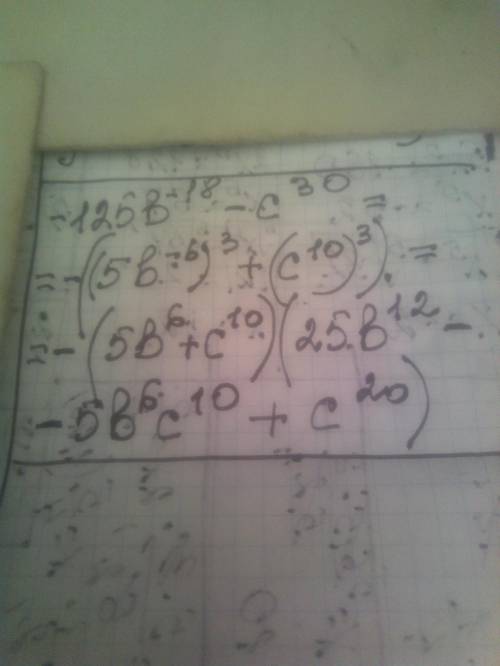 -125b⁻¹⁸ - c³⁰ =
= -((5b⁻⁶)³ + (c¹⁰)³) =
= -(5b⁶ + c¹⁰)(25b¹² -
- 5b⁶c¹⁰ + c²⁰)